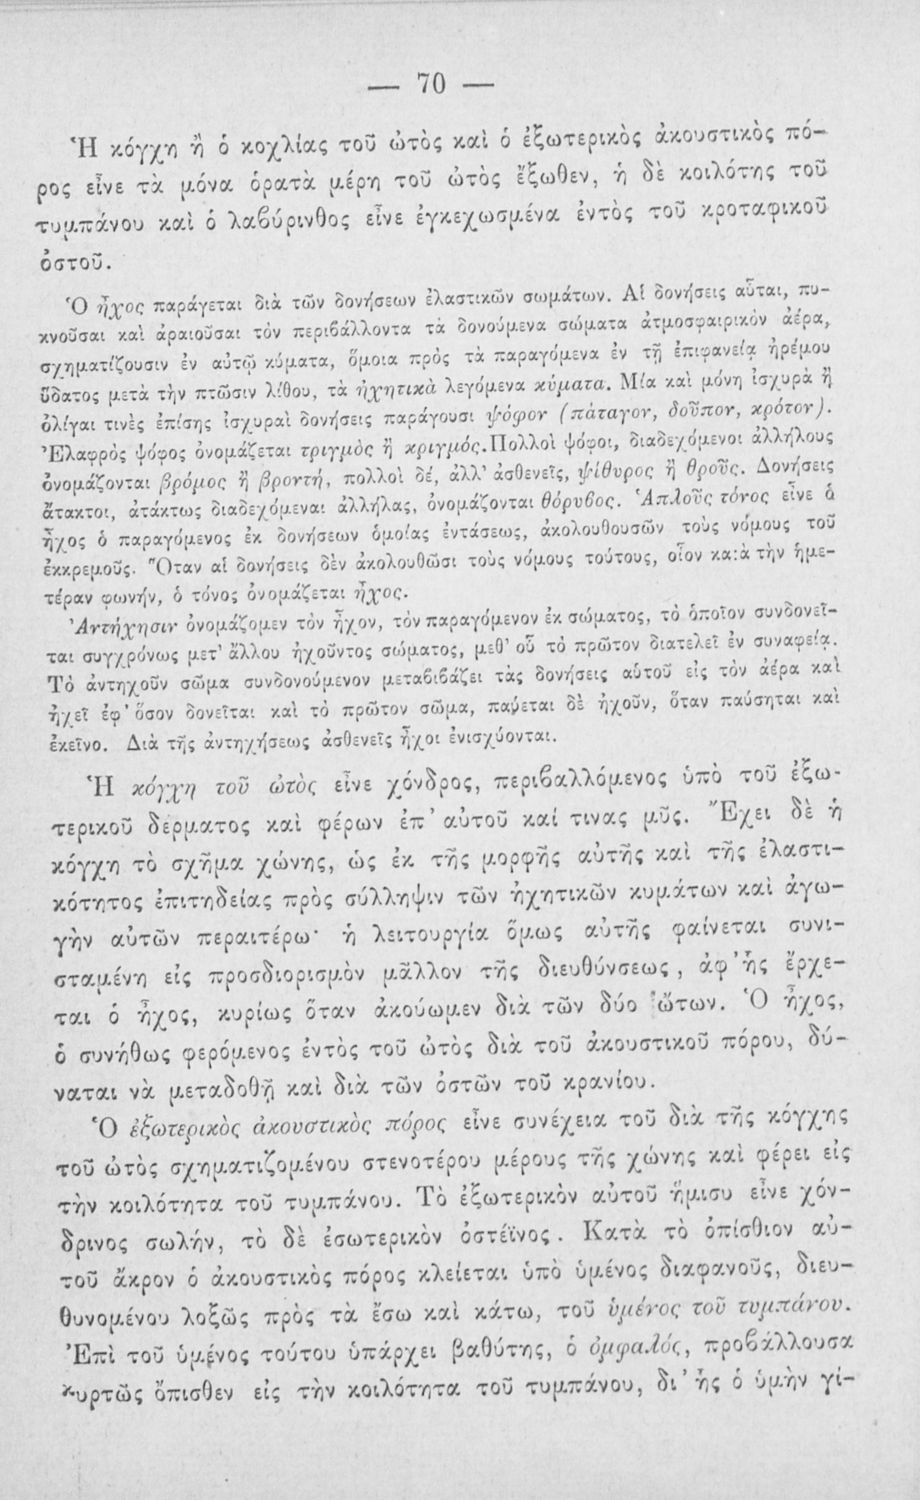 — 70 —
Ἡ κόγχη ἢ ὁ κοχλίας τοῦ ὠτὸς καὶ ὁ ἐξωτερικὸς ἀκουστικὸς πό-
ρος εἶνε τὰ μόνα ὁρατὰ μέρη τοῦ ὠτὸς ἔξωθεν, ἡ δὲ κοιλότης τοῦ
τυμπάνου καὶ ὁ λαβύρινθος εἶνε ἐγκεχωσμένα ἐντὸς τοῦ κροταφικοῦ
ὀστοῦ.
Ὁ ἦχος παράγεται διὰ τῶν δονήσεων ἐλαστικῶν σωμάτων. Αἱ δονήσεις αὗται, πυ-
κνοῦσαι καὶ ἀραιοῦσαι τὸν περιβάλλοντα τὰ δονούμενα σώματα ἀτμοσφαιρικὸν ἀέρα,
σχηματίζουσιν ἐν αὐτῷ κύματα, ὅμοια πρὸς τὰ παραγόμενα ἐν τῇ ἐπιφανείᾳ ἠρέμου
ὕδατος μετὰ τὴν πτῶσιν λίθου, τὰ ἠχητικὰ λεγόμενα κύματα. Μία καὶ μόνη ἰσχυρὰ ἢ
ὀλίγαι τινὲς ἐπίσης ἰσχυραὶ δονήσεις παράγουσι ψόφον (πάταγον, δοῦπον, κρότον).
Ἐλαφρὸς ψόφος ὀνομάζεται τριγμὸς ἢ κριγμός. Πολλοὶ ψόφοι, διαδεχόμενοι ἀλλήλους
ὀνομάζονται βρόμος ἢ βροντή, πολλοὶ δέ, ἀλλ' ἀσθενεῖς, ψίθυρος ἢ θροῦς. Δονήσεις
ἄτακτοι, ἀτάκτως διαδεχόμεναι ἀλλήλας, ὀνομάζονται θόρυβος. Ἁπλοῦς τόνος εἶνε ὁ
ἦχος ὁ παραγόμενος ἐκ δονήσεων ὁμοίας ἐντάσεως, ἀκολουθουσῶν τοὺς νόμους τοῦ
ἐκκρεμοῦς. Ὅταν αἱ δονήσεις δὲν ἀκολουθῶσι τοὺς νόμους τούτους, οἷον κατὰ τὴν ἡμε-
τέραν φωνήν, ὁ τόνος ὀνομάζεται ἦχος.
Ἀντήχησιν ὀνομάζομεν τὸν ἦχον, τὸν παραγόμενον ἐκ σώματος, τὸ ὁποῖον συνδονεῖ-
ται συγχρόνως μετ' ἄλλου ἠχοῦντος σώματος, μεθ' οὗ τὸ πρῶτον διατελεῖ ἐν συναφείᾳ.
Τὸ ἀντηχοῦν σῶμα συνδονούμενον μεταβιβάζει τὰς δονήσεις αὑτοῦ εἰς τὸν ἀέρα καὶ
ἠχεῖ ἐφ' ὅσον δονεῖται καὶ τὸ πρῶτον σῶμα, παύεται δὲ ἠχοῦν, ὅταν παύσηται καὶ
ἐκεῖνο. Διὰ τῆς ἀντηχήσεως ἀσθενεῖς ἦχοι ἐνισχύονται.
Ἡ κόγχη τοῦ ὠτὸς εἶνε χόνδρος, περιβαλλόμενος ὑπὸ τοῦ ἐξω-
τερικοῦ δέρματος καὶ φέρων ἐπ' αὐτοῦ καί τινας μῦς. Ἔχει δὲ ἡ
κόγχη τὸ σχῆμα χώνης, ὡς ἐκ τῆς μορφῆς αὐτῆς καὶ τῆς ἐλαστι-
κότητος ἐπιτηδείας πρὸς σύλληψιν τῶν ἠχητικῶν κυμάτων καὶ ἀγω-
γὴν αὐτῶν περαιτέρω· ἡ λειτουργία ὅμως αὐτῆς φαίνεται συνι-
σταμένη εἰς προσδιορισμὸν μᾶλλον τῆς διευθύνσεως, ἀφ' ἧς ἔρχε-
ται ὁ ἦχος, κυρίως ὅταν ἀκούωμεν διὰ τῶν δύο ὤτων. Ὁ ἦχος,
ὁ συνήθως φερόμενος ἐντὸς τοῦ ὠτὸς διὰ τοῦ ἀκουστικοῦ πόρου, δύ-
ναται νὰ μεταδοθῇ καὶ διὰ τῶν ὀστῶν τοῦ κρανίου.
Ὁ ἐξωτερικὸς ἀκουστικὸς πόρος εἶνε συνέχεια τοῦ διὰ τῆς κόγχης
τοῦ ὠτὸς σχηματιζομένου στενοτέρου μέρους τῆς χώνης καὶ φέρει εἰς
τὴν κοιλότητα τοῦ τυμπάνου. Τὸ ἐξωτερικὸν αὐτοῦ ἥμισυ εἶνε χόν-
δρινος σωλήν, τὸ δὲ ἐσωτερικὸν ὀστέϊνος. Κατὰ τὸ ὀπίσθιον αὐ-
τοῦ ἄκρον ὁ ἀκουστικὸς πόρος κλείεται ὑπὸ ὑμένος διαφανοῦς, διευ-
θυνομένου λοξῶς πρὸς τὰ ἔσω καὶ κάτω, τοῦ ὑμένος τοῦ τυμπάνου.
Ἐπὶ τοῦ ὑμένος τούτου ὑπάρχει βαθύτης, ὁ ὀμφαλός, προβάλλουσα
κυρτῶς ὄπισθεν εἰς τὴν κοιλότητα τοῦ τυμπάνου, δι' ἧς ὁ ὑμὴν γί-